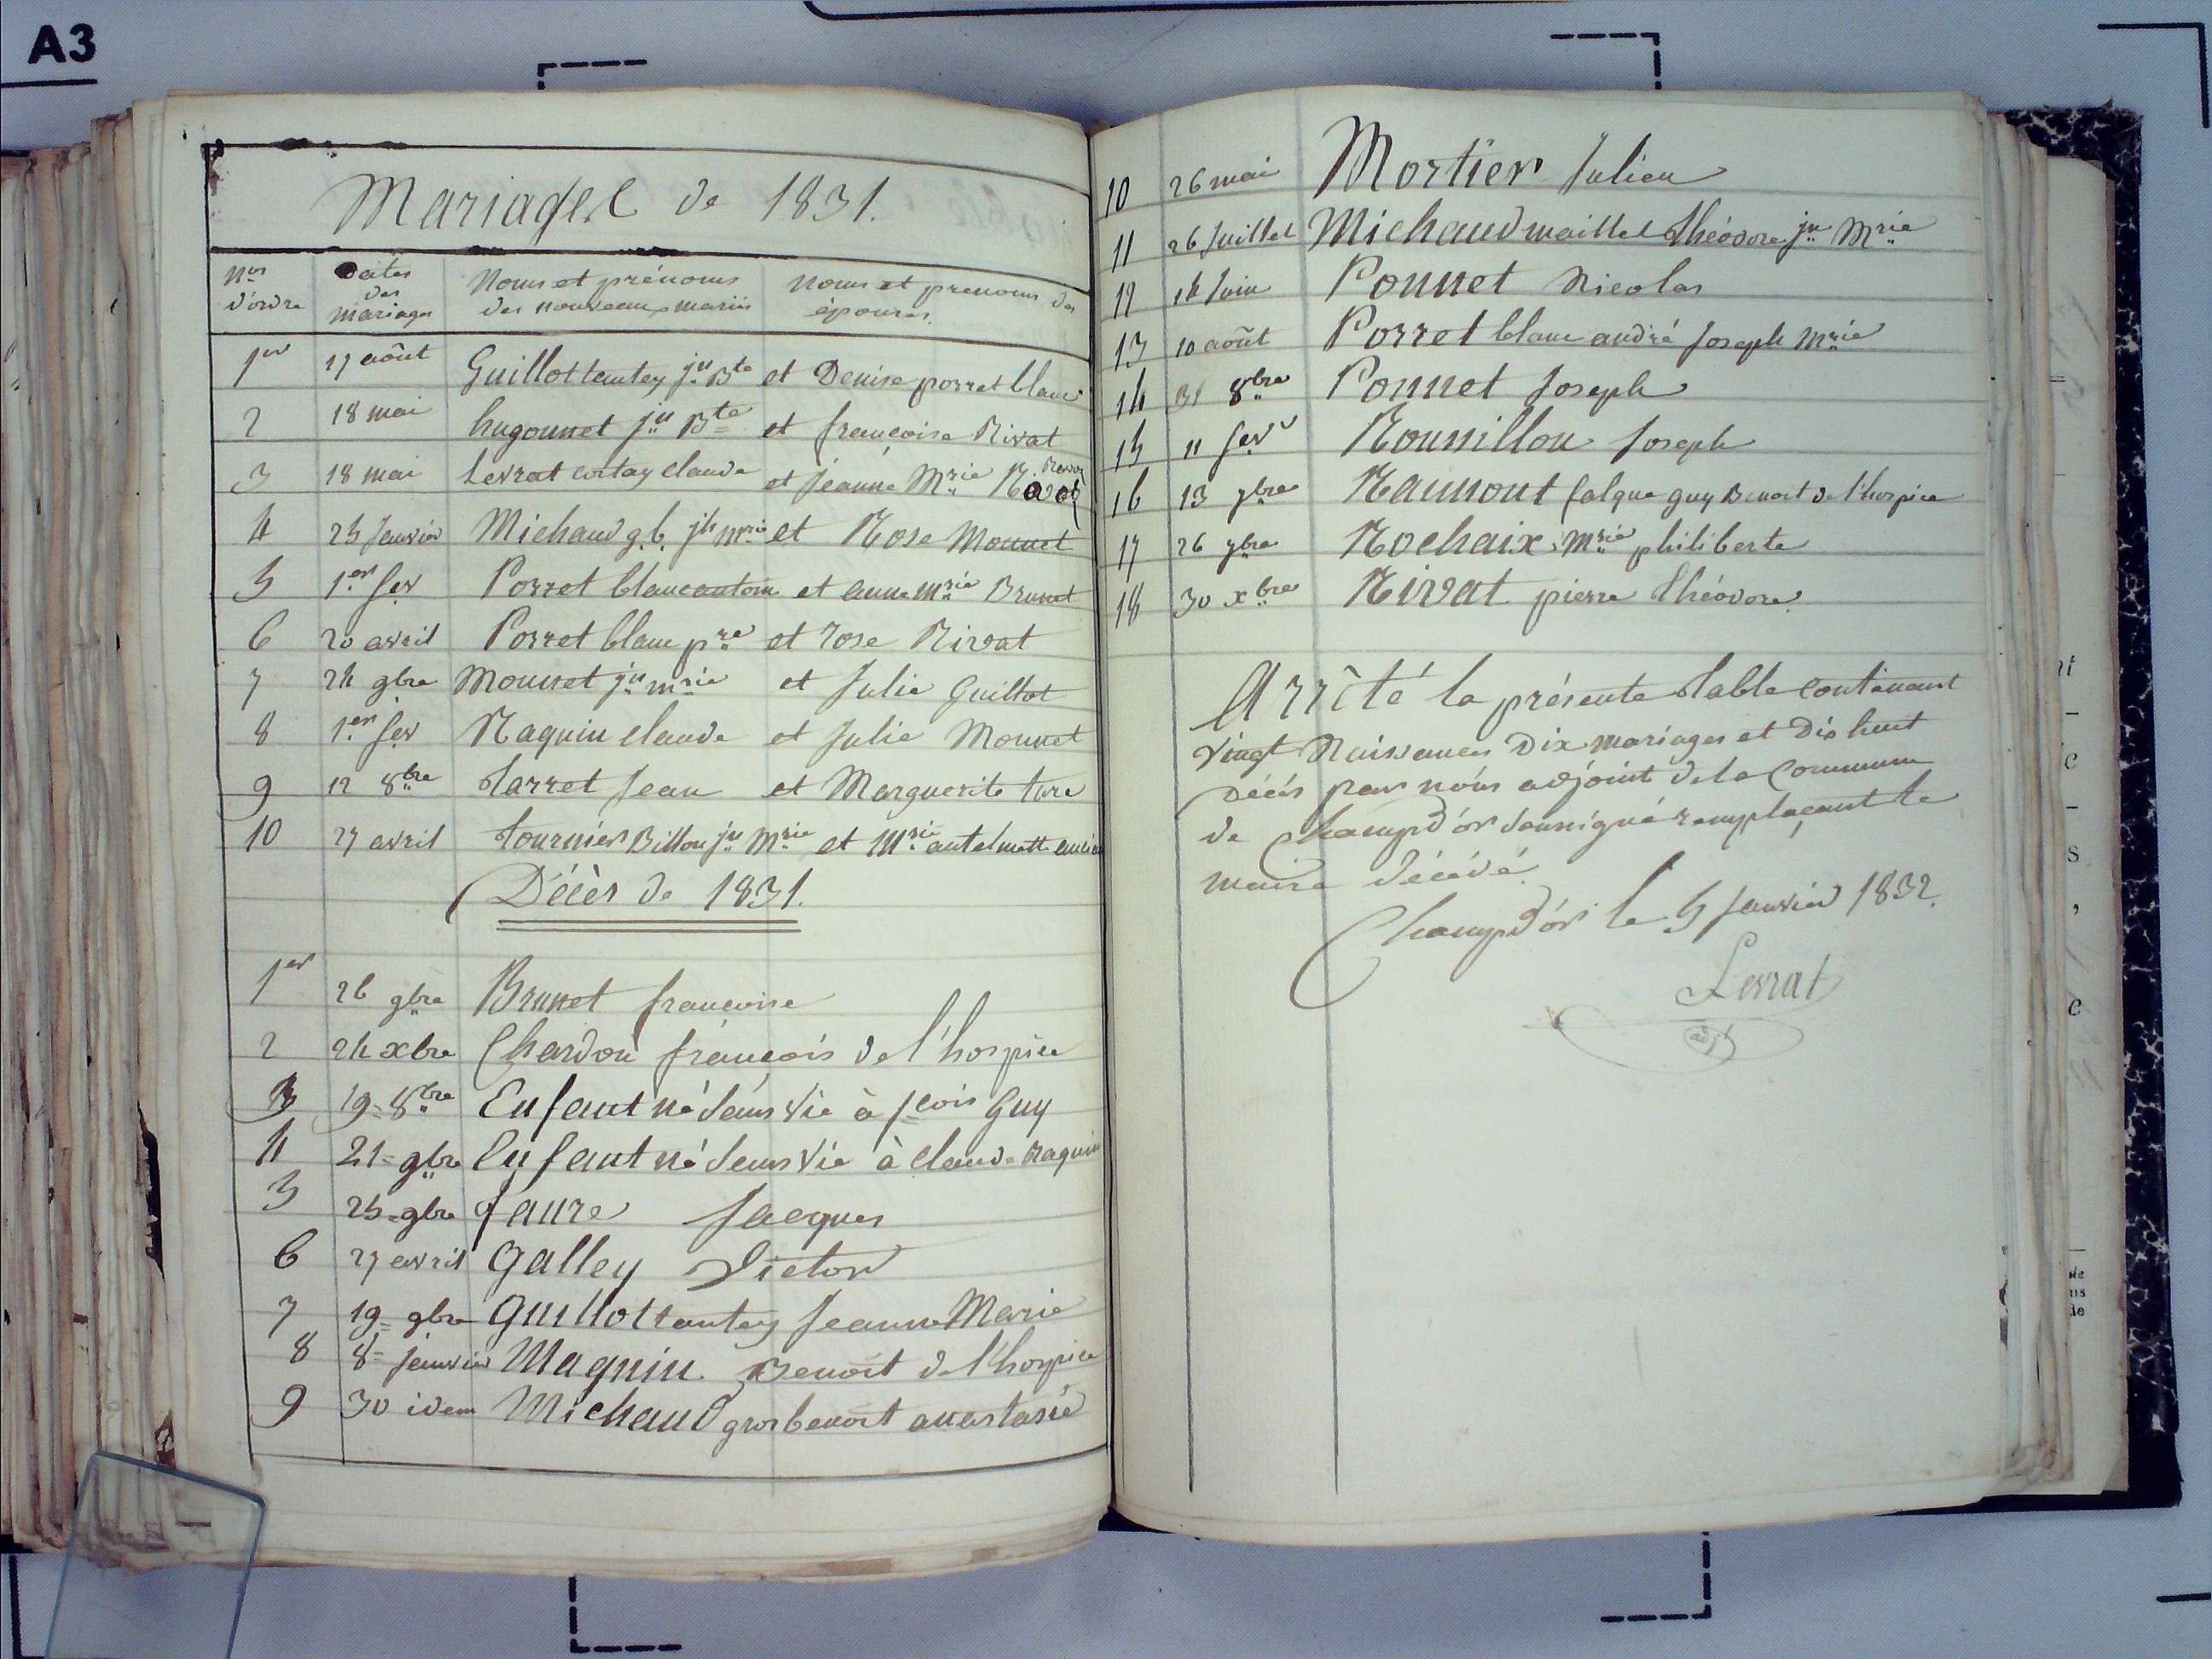 A3
Mariages de 1831.
nos d'ordre
Dates des mariages
Noms et prénoms des nouveaux mariés
noms et prenoms des épouses.
1er 17 août Guillot tantey jn Bte et Denise porret blanc
2 18 mai hugonnet jn Bte et françoise Rivat
3 18 mai Levrat cortay claude et jeanne Mrie
4 25 Janvier Michaud g.b. jh mrie et Rose Monnet
5 1er fev Porret blanc antoin et anne mrie Brunet
6 20 avril Porret blanc pre et rose Rivat
7 24 9bre Monnet jn mrie et Julie Guillot
8 1er fev Raquin claude et Julie Monnet
9 12 8bre Tarret Jean et Marguerite ture
10 27 avril Tournier Billon jn Mrie et Mrie antelmette
Décès de 1831.
1er 26 9bre Brunet françoise
2 24 xbre Chardon françois de l'hospice
3 19=8bre Enfant né sans vie à fcois Guy
4 21=9bre Enfant né sans vie à claude Raquin
5 25=9bre faure Jacques
6 27 avril Galley Victor
7 19=9bre Guillot tantey Jeanne Marie
8 8=janvier Magnin Benoit de l'hospice
9 30 idem Michaud gros benoit anastasie
10 26 mai Mortier Julien
11 26 Juillet Michaud maillet théodore jn Mrie
12 14 Juin Ponnet Nicolas
13 10 août Porret blanc andré joseph Mrie
14 31 8bre Ponnet Joseph
15 11 fevr Roussillon Joseph
16 13 7bre Raumont falque guy Benoit de l'hospice
17 26 7bre Rochaix Mrie philiberte
18 30 xbre Rivat pierre théodore
Arrêté la présente table contenant
vingt Naissances Dix mariages et Dix huit
Décés par nous adjoint de la Commune
de Champd'or soussigné remplaçant le
maire décédé.
Champd'or le 5 janvier 1832.
Levrat
adjt